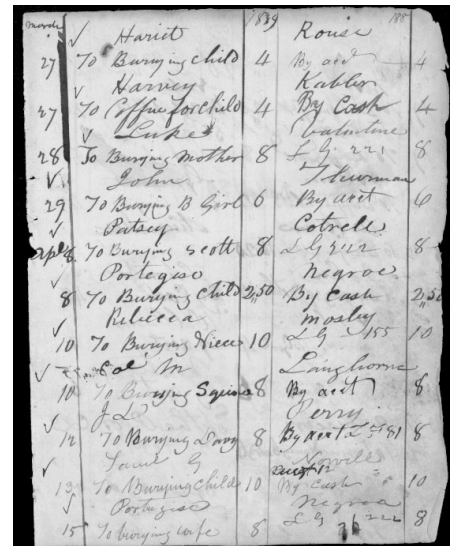 March 1839 188
Hariet Rouse
27 To Burying child 4 By act 4
Harvey Kabler
27 To Coffin for child 4 By Cash 4
Luke Valentine
28 To Burying Mother 8 L G 221 8
John Thurman
29 To Burying B Girl 6 By acct 6
Patsey Cotrell
Apl 8 To Burying Scott 8 L G 212 8
Portegise Negroe
8 To Burying Child 2,50 By Cash 2,50
Rebecca Mosby
10 To Burying Niece 10 L G 155 10
Col M Langhorne
10 To Burying Squire 8 By acct 8
J L Perry
12 To Burying Davy 8 By acct L G 81 8
Saml G Norvell
13 To Burying Child 10 By Cash 10
Portugise Negroe
15 To burying wife 8 L G 222 8